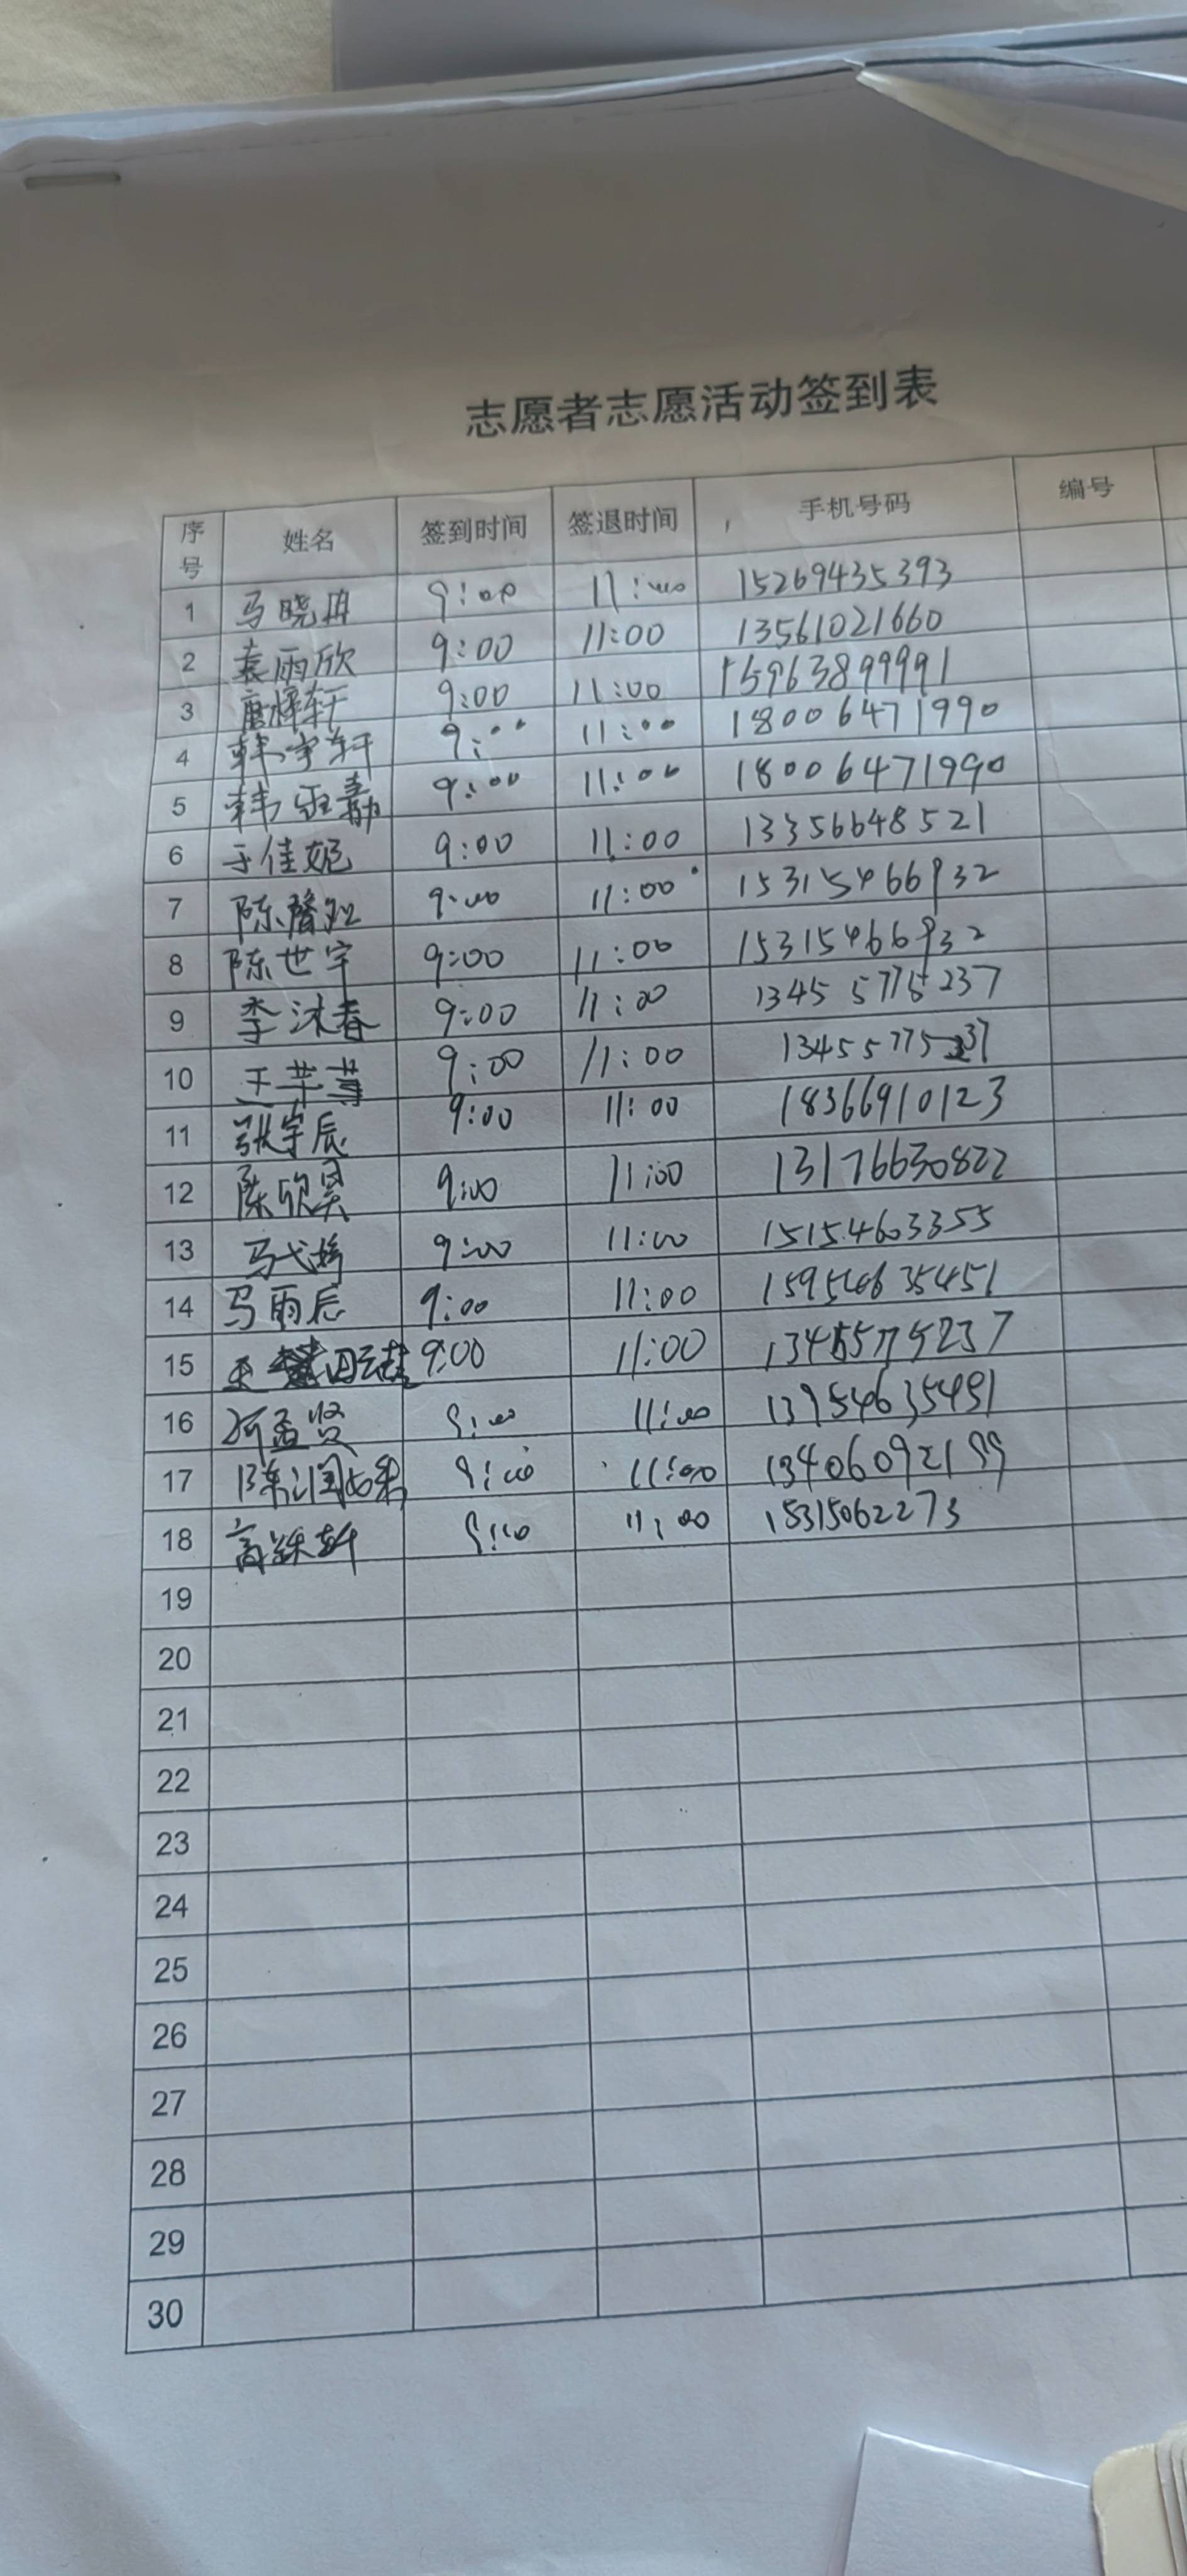 志愿者志愿活动签到表
序号 姓名 签到时间 签退时间 手机号码 编号
1 马晓冉 9:00 11:00 15269435393
2 袁雨欣 9:00 11:00 13561021660
3 唐烨轩 9:00 11:00 15963899991
4 韩宇轩 9:00 11:00 18006471990
5 韩 9:00 11:00 18006471990
6 于佳妮 9:00 11:00 13356648521
7 陈馨 9:00 11:00 15315466932
8 陈世宇 9:00 11:00 15315466932
9 李沐春 9:00 11:00 13455775237
10 王芊 9:00 11:00 13455775237
11 张宇辰 9:00 11:00 18366910123
12 陈欣昊 9:00 11:00 13176630822
13 马弋 9:00 11:00 15154603355
14 马雨辰 9:00 11:00 159546635451
15 9:00 11:00 13455775237
16 孟贤 9:00 11:00 13954635491
17 陈润 9:00 11:00 13406092199
18 高 轩 9:00 11:00 18315062273
19
20
21
22
23
24
25
26
27
28
29
30